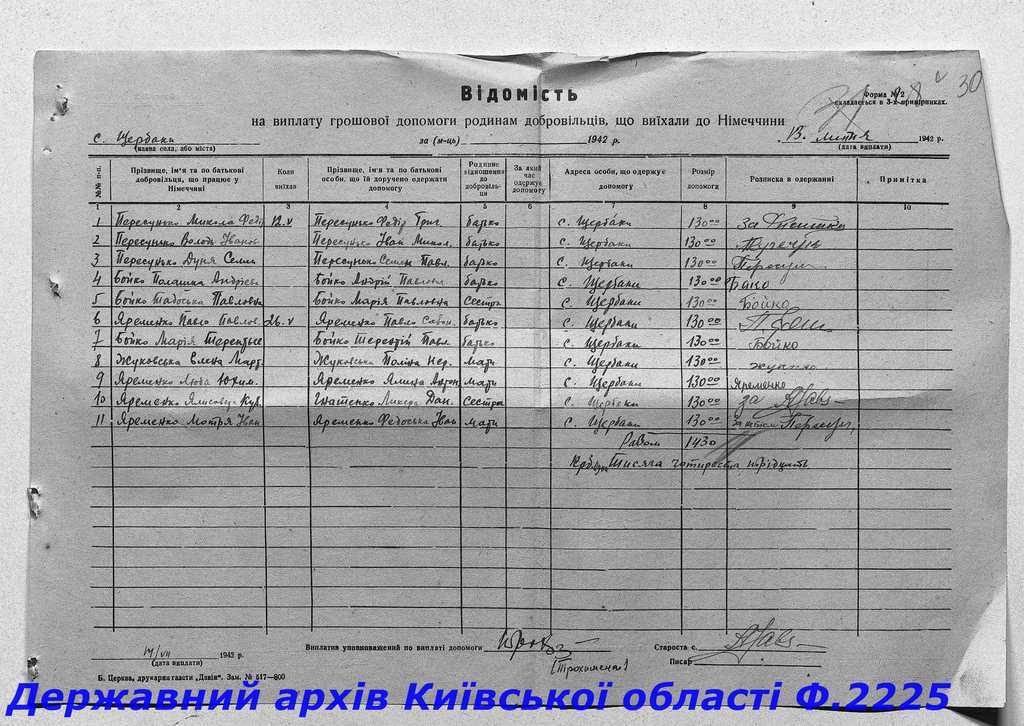 30
Форма № 2
складається в 3-х примірниках.
Відомість
на виплату грошової допомоги родинам добровільців, що виїхали до Німеччини
с. Щербаки за (м-ць) 1942 р. 13. липня 1942 р.
(назва села, або міста) (дата виплати)
№№ п-п. Прізвище, ім'я та по батькові добровільця, що працює у Німеччині Коли виїхав Прізвище, ім'я та по батькові особи, що їй доручено одержати допомогу Родинне відношення до добровільця За який час одержує допомогу Адреса особи, що одержує допомогу Розмір допомоги Розписка в одержанні Примітка
1 2 3 4 5 6 7 8 9 10
1 Пересунько Микола Федір 12.V Пересунько Федір Григ. батько с. Щербаки 130 00 за
2 Пересунько Володи Іванов Пересунько Іван Микол. батько с. Щербаки 130 00
3 Пересунько Дуня Семен Пересунько Семен Павл. батько с. Щербаки 130 00
4 Бойко Полашка Андріев Бойко Андрій Павлов батько с. Щербаки 130 00 Бойко
5 Бойко Тадоська Павловна Бойко Марія Павловна Сестра с. Щербаки 130 00 Бойко
6 Яременко Павло Павлов. 26.V Яременко Павло Савон. батько с. Щербаки 130 00
7 Бойко Марія Терентьев Бойко Терентій Павл. батько с. Щербаки 130 00 Бойко
8 Жуковська Елена Март Жуковська Поліна Нер. мати с. Щербаки 130 00
9 Яременко Люба Юхим. Яременко Ялина Антон. мати с. Щербаки 130 00 Яременко
10 Яременко Гнатенко Ликера Дан. Сестра с. Щербаки 130 00 за
11 Яременко Мотря Іван Яременко Федоська Іван мати с. Щербаки 130 00
Разом 1430
Тисяча чотириста трідцать
14/VII 1942 р. Виплатив уповноважений по виплаті допомоги Староста с.
(дата виплати) (Трохименко) Писар
Б. Церква, друкарня газети „Дзвін". Зам. № 517—800
Державний архів Київської області Ф.2225